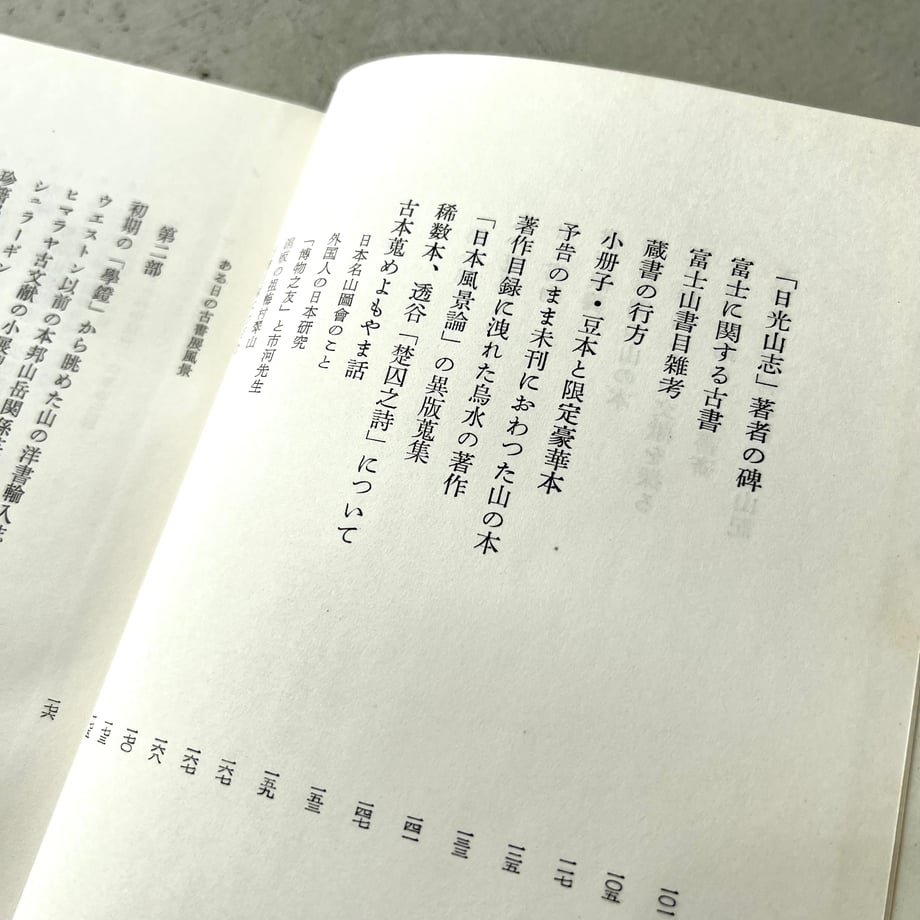 「日光山志」著者の碑 一〇一
富士に関する古書 一〇五
富士山書目雑考 一一七
蔵書の行方 一二五
小册子・豆本と限定豪華本 一三三
予告のまま未刊におわつた山の本 一四一
著作目録に洩れた烏水の著作 一四七
「日本風景論」の異版蒐集 一五三
稀数本、透谷「楚囚之詩」について 一五九
古本蒐めよもやま話 一六七
日本名山圖會のこと 一六七
外国人の日本研究 一六八
「博物之友」と市河先生 一七〇
の祖梅村翠山 一七三
ある日の古書展風景 一七六
第二部
初期の「學鐙」から眺めた山の洋書輸入
ウエストン以前の本邦山岳関係
ヒマラヤ古文献の小展
シュラーギン